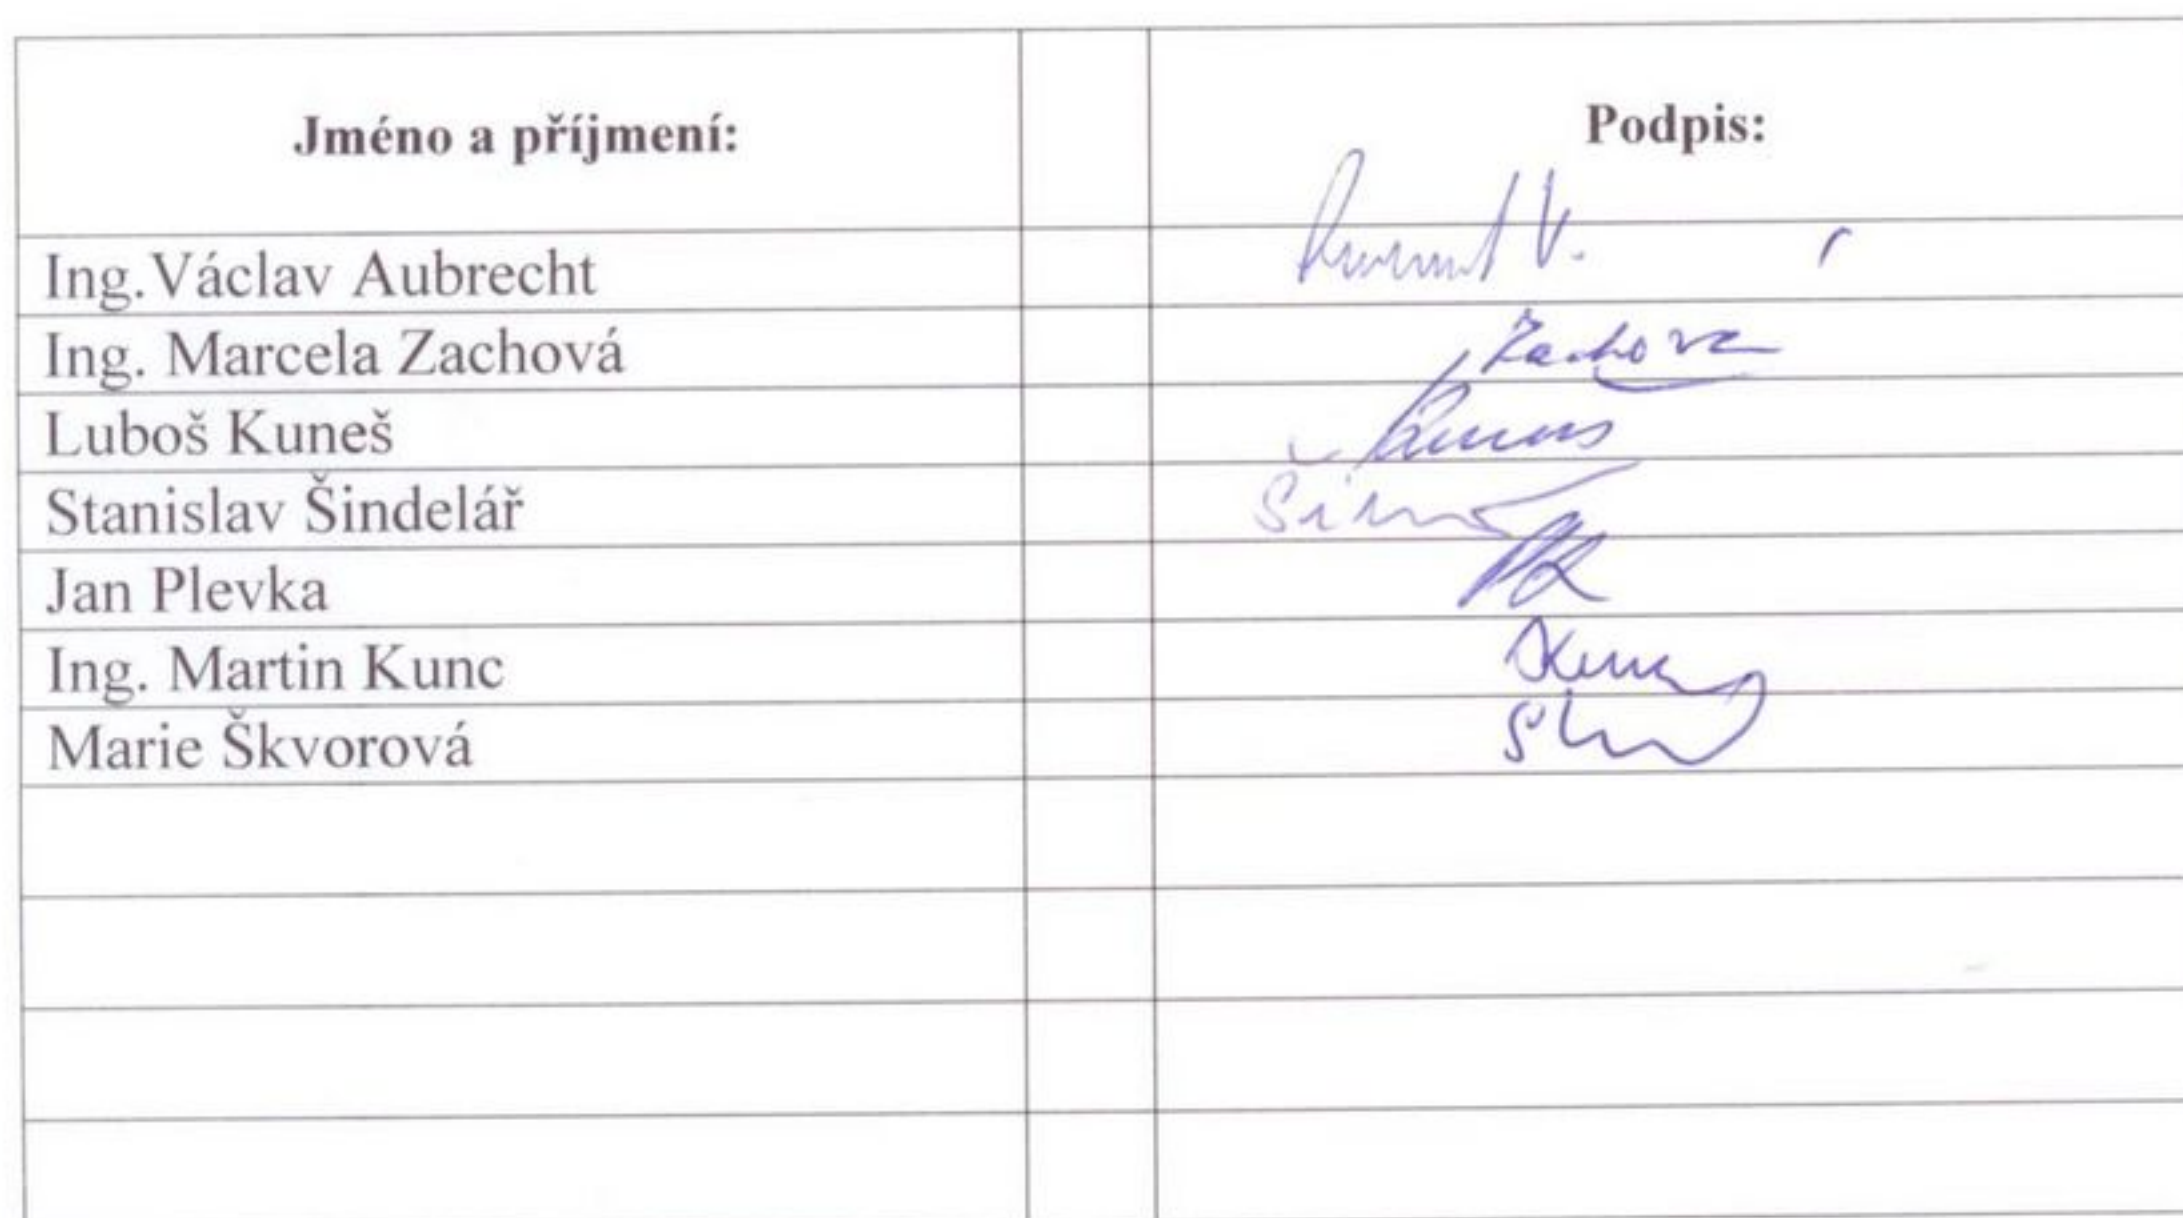 Jméno a příjmení: Podpis:
Ing.Václav Aubrecht
Ing. Marcela Zachová Zachova
Luboš Kuneš
Stanislav Šindelář
Jan Plevka
Ing. Martin Kunc
Marie Škvorová